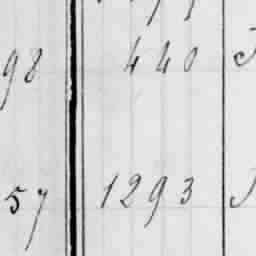 98 440
57 1293